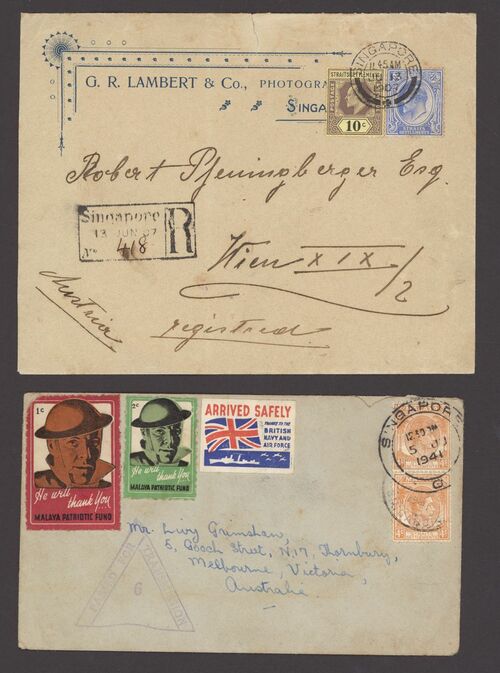 G. R. LAMBERT & Co., PHOTOGRA
SINGA
STRAITS SETTLEMENTS
POSTAGE
10c
SINGAPORE
11.45AM
JU 13
1907
STRAITS
SETTLEMENTS
Robert Pfenningberger Esq.
Singapore
13 JUN 07
R
No 418
Wien XIX/2
Austria
registered
1c
He will thank You...
MALAYA PATRIOTIC FUND
2c
He will thank You...
MALAYA PATRIOTIC FUND
ARRIVED SAFELY
THANKS TO THE
BRITISH
NAVY AND
AIR FORCE
SINGAPORE
5 JU
1941
C
Mr. Livy Grimshaw,
5, Gooch Street, N.17, Thornbury,
Melbourne, Victoria,
Australia.
PASSED FOR
TRANSMISSION
6